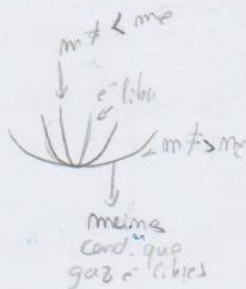 m* < me
e⁻ libre
m* > me
moins
cond. que
gaz e⁻ libres